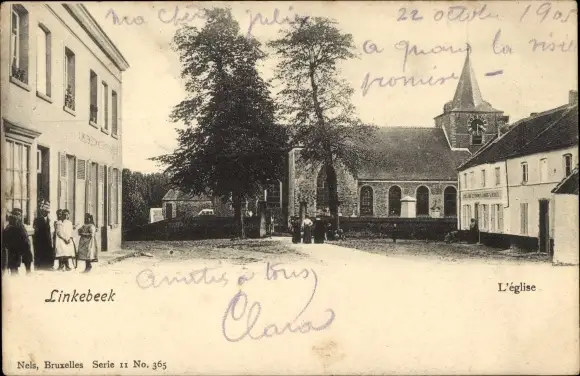 ma chère julie
22 octobre 1905
a quand la visite
promise
Linkebeek
L'église
Amitiés à tous
Clara
Nels, Bruxelles Serie 11 No. 365